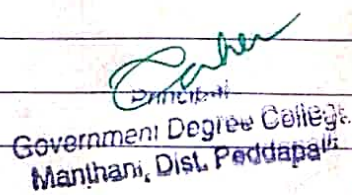 Principal
Government Degree College
Manthani, Dist. Peddapalli